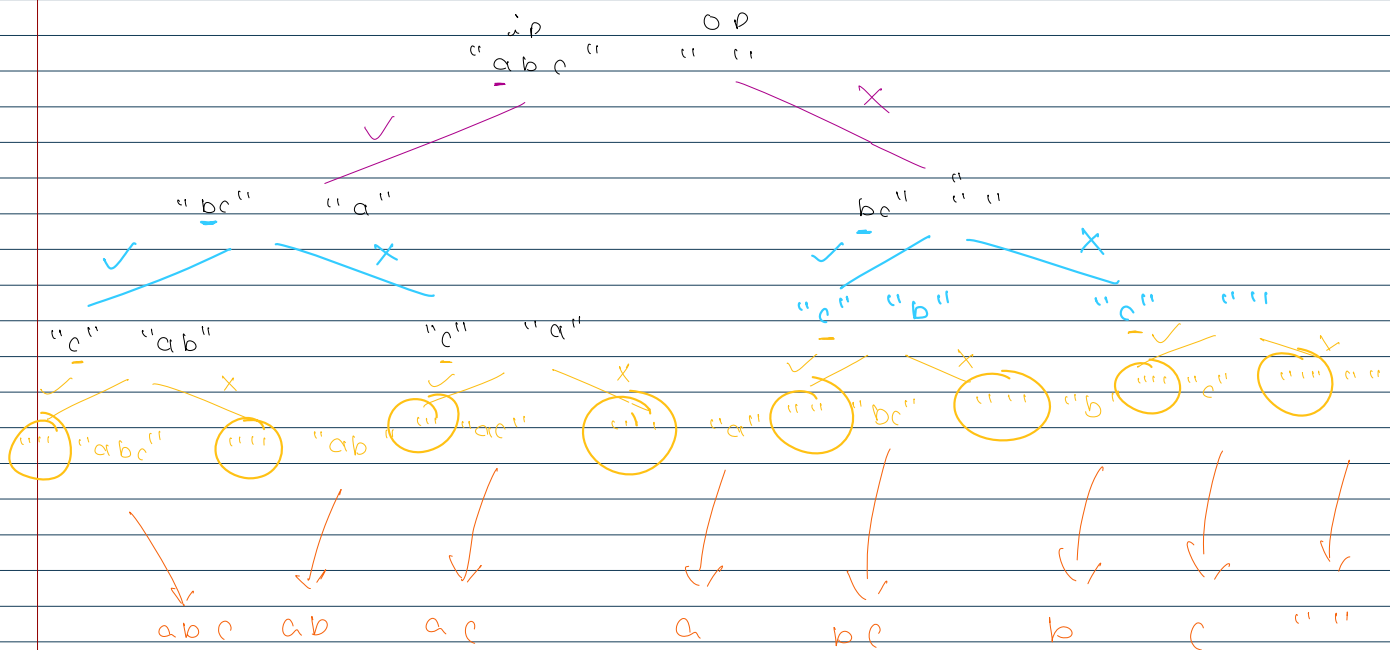 ip OP
"abc" " "
✓ X
"bc" "a" "bc" " "
✓ X ✓ X
"c" "b" "c" " "
"c" "ab" "c" "a"
✓ X ✓ X ✓ X ✓
"" "abc" "" "ab" "" "ac" "" "a" "" "bc" "" "b" "" "c" "" ""
abc ab ac a bc b c " "